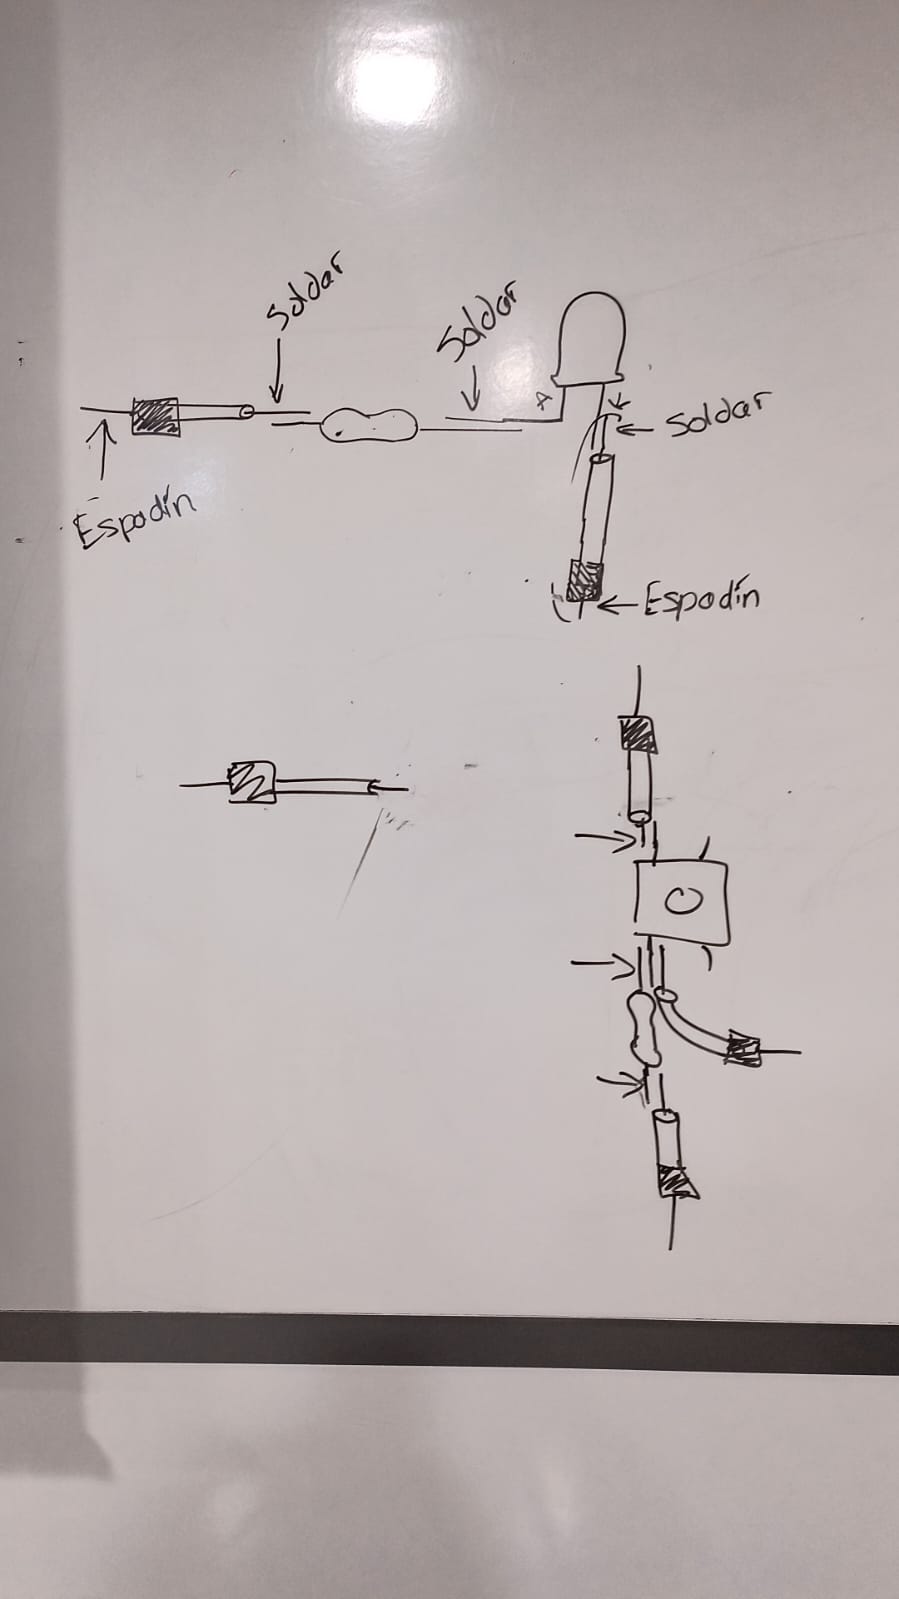 Soldar
Soldar
A
K
Soldar
Espadín
Espadín